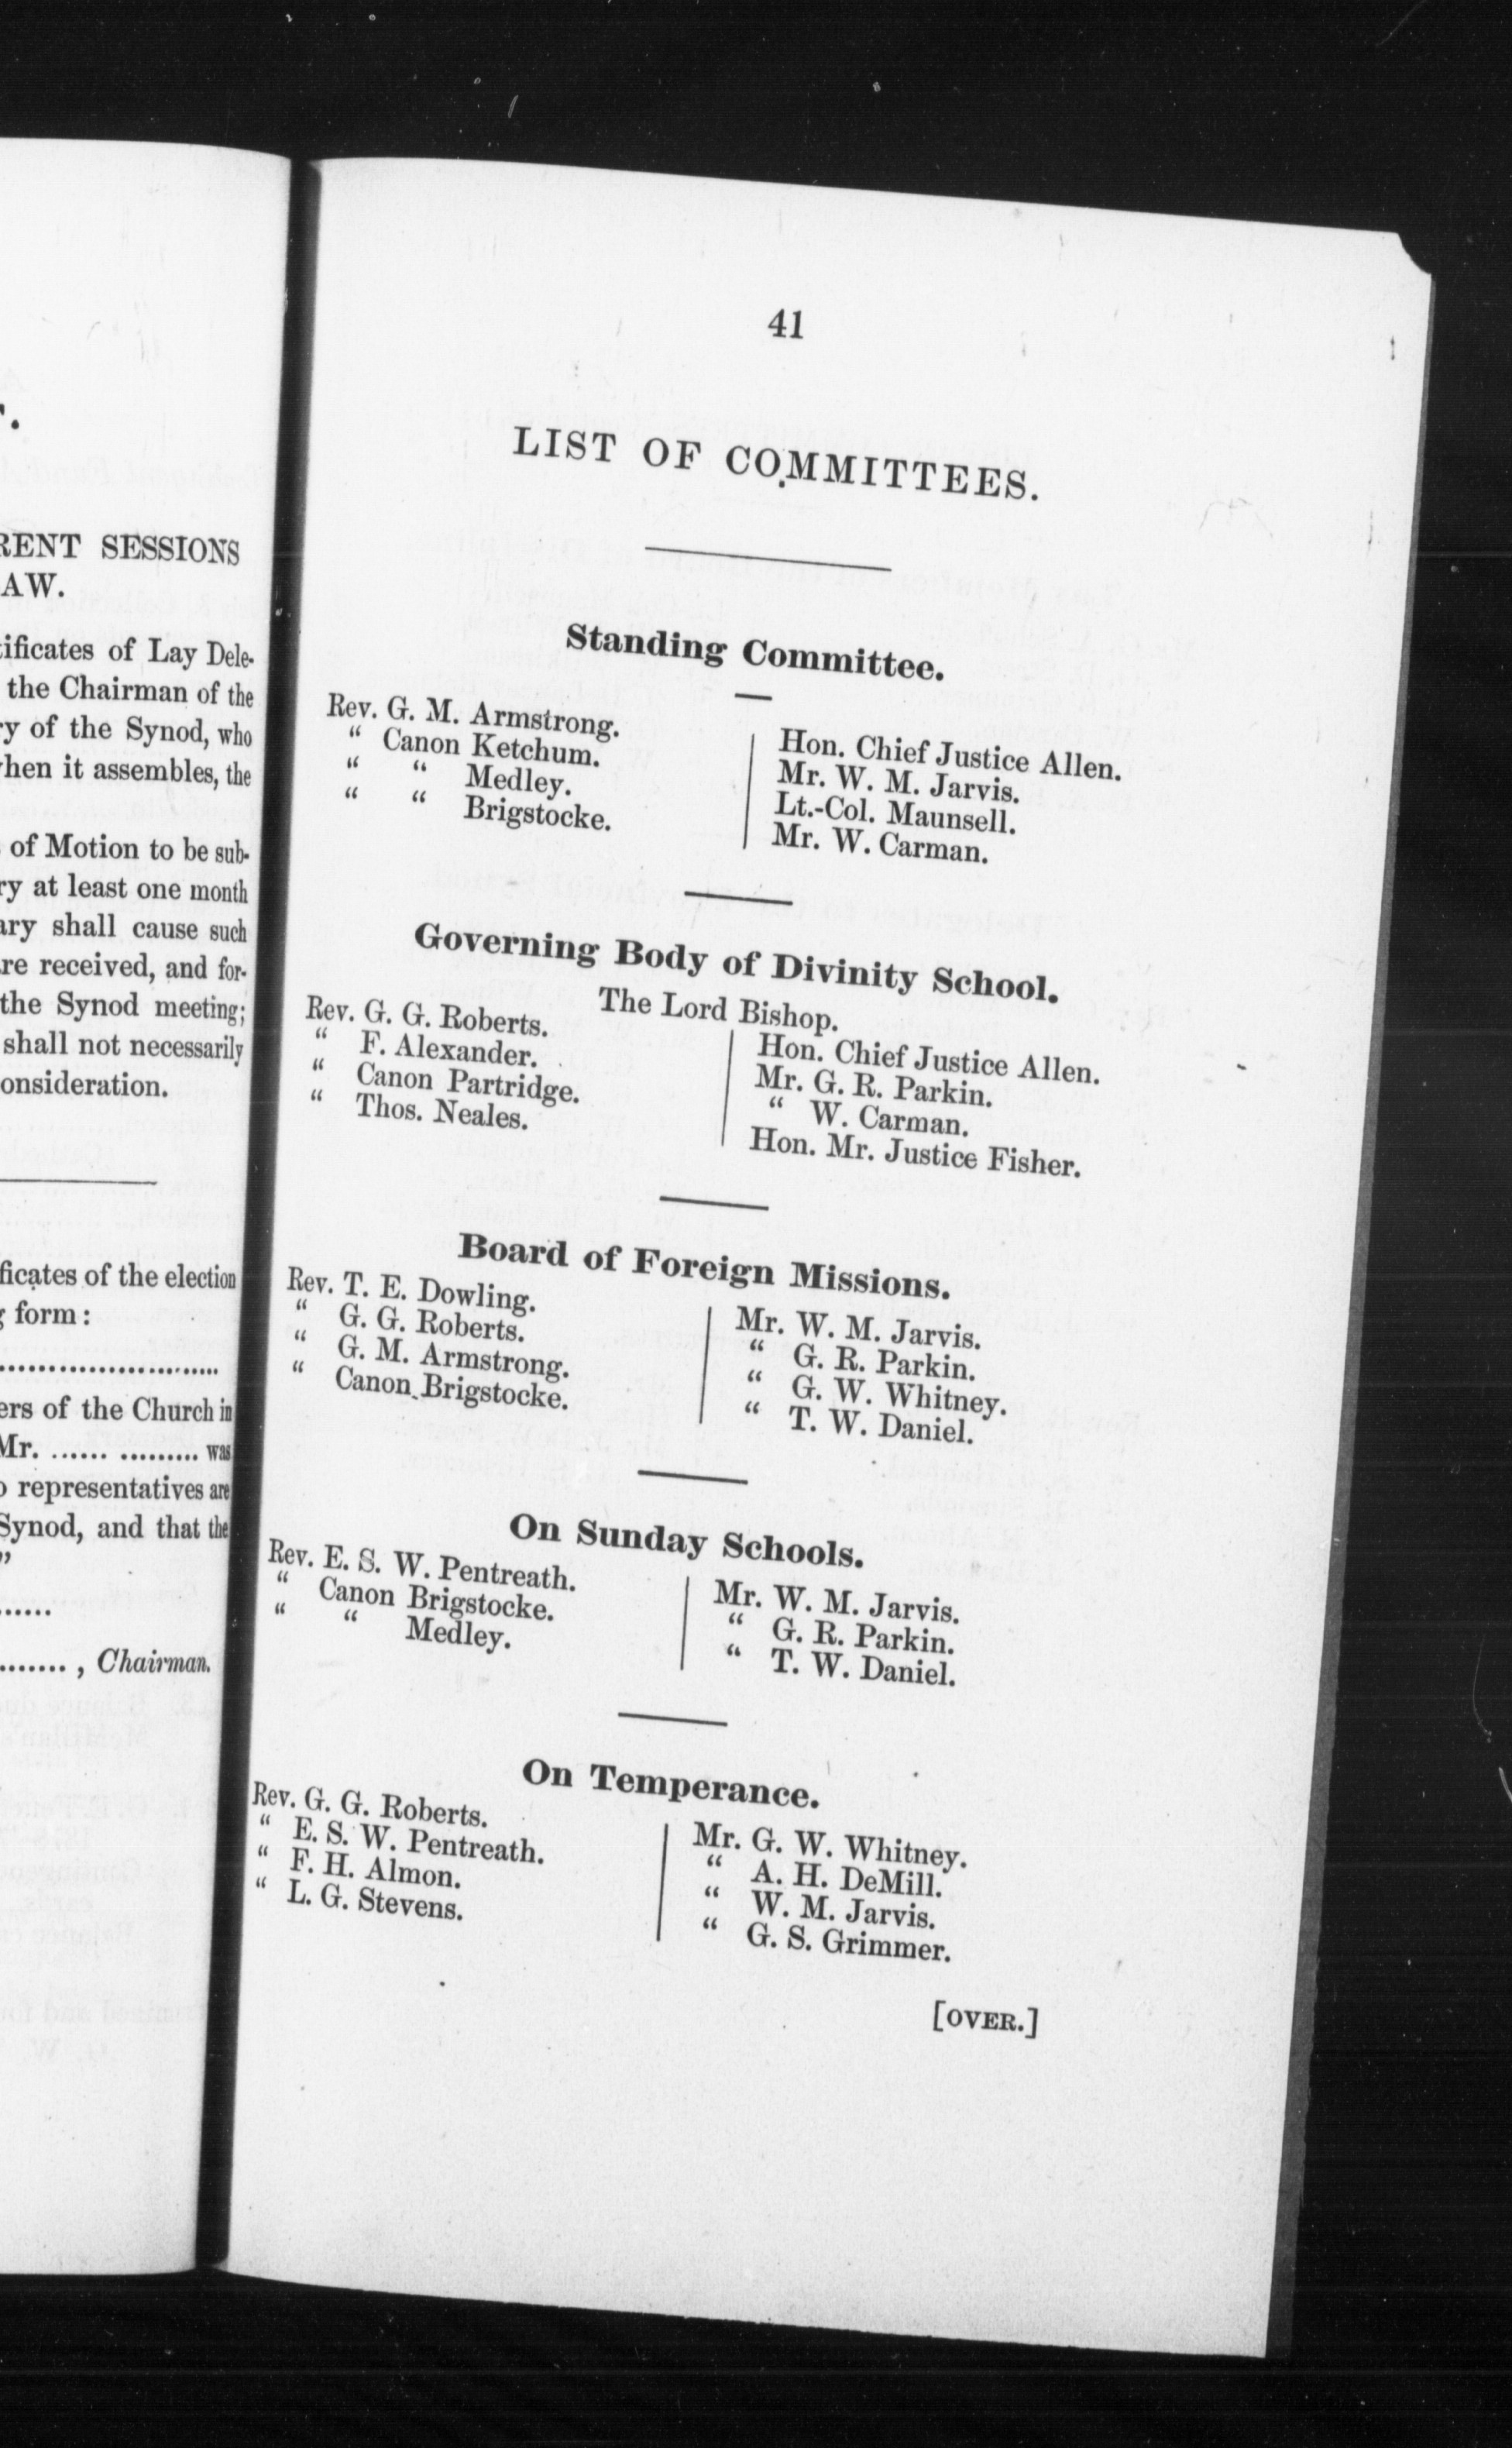 RENT SESSIONS
AW.
ificates of Lay Dele-
the Chairman of the
y of the Synod, who
hen it assembles, the
of Motion to be sub-
ry at least one month
ary shall cause such
re received, and for-
the Synod meeting;
shall not necessarily
onsideration.
ficates of the election
form:
ers of the Church in
Mr. ...... ......... was
representatives are
Synod, and that the
"
......
....... , Chairman.
41
LIST OF COMMITTEES.
Standing Committee.
Rev. G. M. Armstrong.
" Canon Ketchum.
" " Medley.
" " Brigstocke.
Hon. Chief Justice Allen.
Mr. W. M. Jarvis.
Lt.-Col. Maunsell.
Mr. W. Carman.
Governing Body of Divinity School.
The Lord Bishop.
Rev. G. G. Roberts.
" F. Alexander.
" Canon Partridge.
" Thos. Neales.
Hon. Chief Justice Allen.
Mr. G. R. Parkin.
" W. Carman.
Hon. Mr. Justice Fisher.
Board of Foreign Missions.
Rev. T. E. Dowling.
" G. G. Roberts.
" G. M. Armstrong.
" Canon Brigstocke.
Mr. W. M. Jarvis.
" G. R. Parkin.
" G. W. Whitney.
" T. W. Daniel.
On Sunday Schools.
Rev. E. S. W. Pentreath.
" Canon Brigstocke.
" " Medley.
Mr. W. M. Jarvis.
" G. R. Parkin.
" T. W. Daniel.
On Temperance.
Rev. G. G. Roberts.
" E. S. W. Pentreath.
" F. H. Almon.
" L. G. Stevens.
Mr. G. W. Whitney.
" A. H. DeMill.
" W. M. Jarvis.
" G. S. Grimmer.
[OVER.]